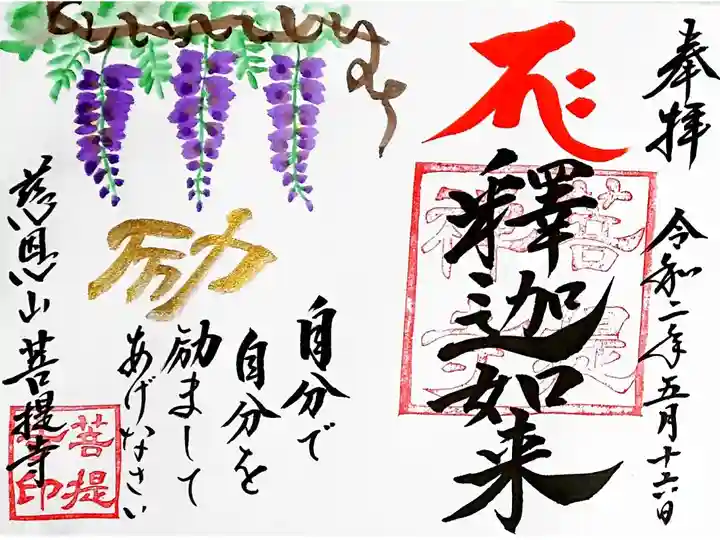 奉拝
令和二年五月十六日
釋迦如来
菩提
禅寺
励
自分で
自分を
励まして
あげなさい
慈恩山菩提寺
菩提
印